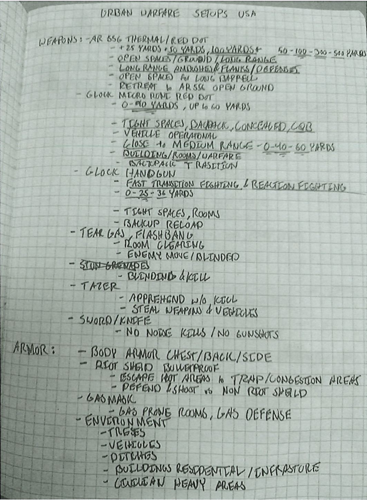 URBAN WARFARE SETUPS USA
WEAPONS: - AR 556 THERMAL/RED DOT
- +25 YARDS +50 YARDS, 100 YARDS + 50-100-300-500 YARDS
- OPEN SPACES/GROUND/LONG RANGE
- LONG RANGE AMBUSHES/FLANKS/DEFENSES
- OPEN SPACES FOR LONG BARRELL
- RETREAT to AR 556 OPEN GROUND
- GLOCK MICRO RONI RED DOT
- 0-40 YARDS, UP to 60 YARDS
- TIGHT SPACES, BACKPACK, CONCEALED, CQB
- VEHICLE OPERATIONAL
- CLOSE to MEDIUM RANGE - 0-40-60 YARDS
- BUILDING/ROOMS/WARFARE
- BACKPACK TRASITION
- GLOCK HANDGUN
- FAST TRANSITION FIGHTING & REACTION FIGHTING
- 0-25-36 YARDS
- TIGHT SPACES, ROOMS
- BACKUP RELOAD
- TEAR GAS, FLASHBANG
- ROOM CLEARING
- ENEMY MOVE/BLINDED
- STUN GRENADES
- BLINDING & KILL
- TAZER
- APPREHEND W/O KILL
- STEAL WEAPONS & VEHICLES
- SWORD/KNIFE
- NO NOISE KILLS/NO GUNSHOTS
ARMOR: - BODY ARMOR CHEST/BACK/SIDE
- RIOT SHEILD BULLETPROOF
- ESCAPE HOT AREAS to TRAP/CONGESTION AREAS
- DEFEND & SHOOT vs NON RIOT SHEILD
- GAS MASK
- GAS PRONE ROOMS, GAS DEFENSE
- ENVIRONMENT
- TREES
- VEHICLES
- DITCHES
- BUILDINGS RESIDENTIAL/INFRASTURE
- CIVILIAN HEAVY AREAS